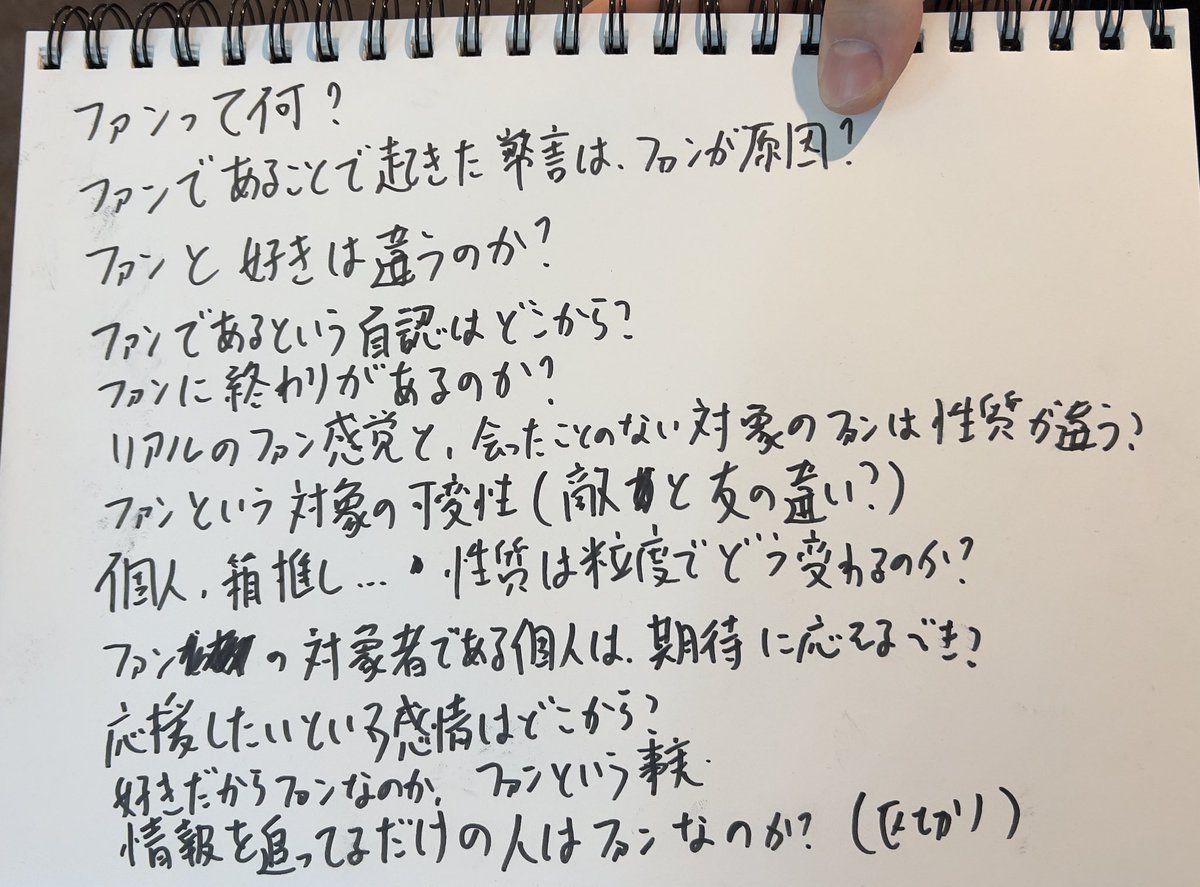 ファンって何?
ファンであることで起きた弊害は、ファンが原因?
ファンと好きは違うのか?
ファンであるという自認はどこから?
ファンに終わりがあるのか?
リアルのファン感覚と、会ったことのない対象のファンは性質が違う?
ファンという対象の可変性(敵と友の違い?)
個人、箱推し...・性質は粒度でどう変わるのか?
ファンの対象者である個人は、期待に応えるべき?
応援したいという感情はどこから?
好きだからファンなのか、ファンという事実.
情報を追ってるだけの人はファンなのか?(区切り)